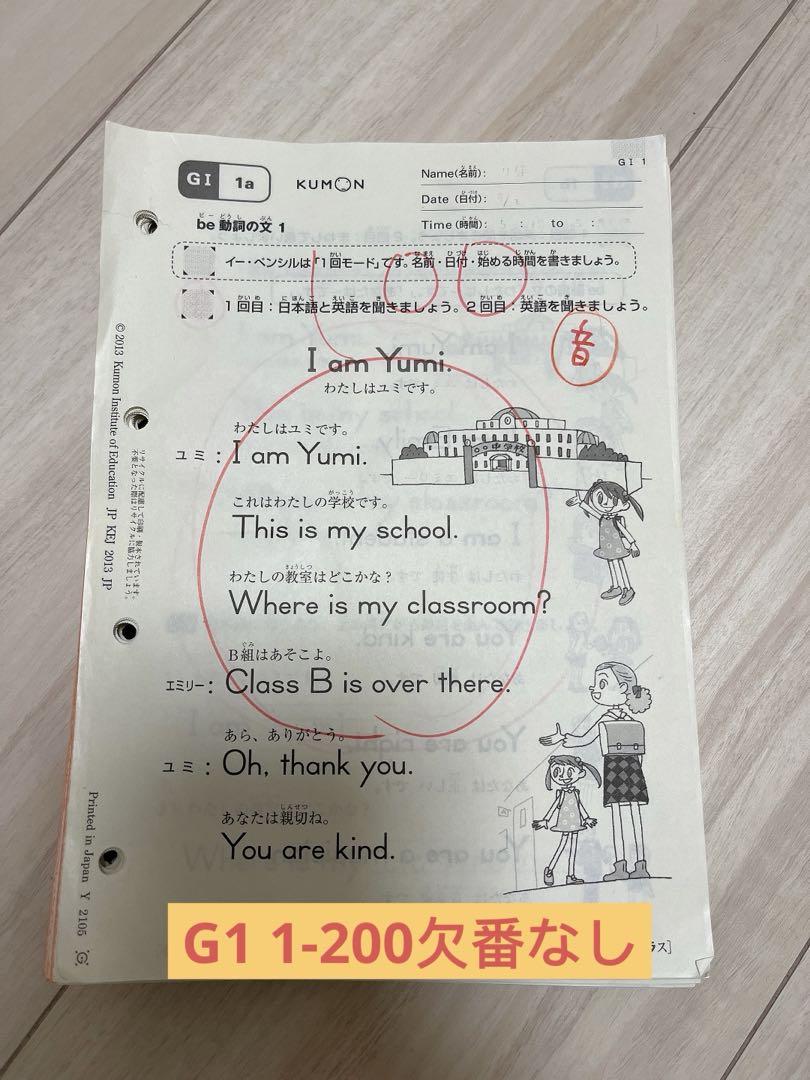 GI 1
GI 1a
KUMON
Name(名前):
Date (日付):
Time(時間): : to :
be 動詞の文 1
イー・ペンシルは「1回モード」です。名前・日付・始める時間を書きましょう。
1回目:日本語と英語を聞きましょう。2回目:英語を聞きましょう。
100
音
I am Yumi.
わたしはユミです。
わたしはユミです。
ユミ: I am Yumi.
中学校
これはわたしの学校です。
This is my school.
わたしの教室はどこかな?
Where is my classroom?
B組はあそこよ。
エミリー: Class B is over there.
あら、ありがとう。
ユミ: Oh, thank you.
あなたは親切ね。
You are kind.
© 2013 Kumon Institute of Education JP KEJ 2013 JP
リサイクルに配慮して印刷・製本されています。
不要となった際はリサイクルに協力しましょう。
Printed in Japan Y 2105
ラス]
G1 1-200欠番なし